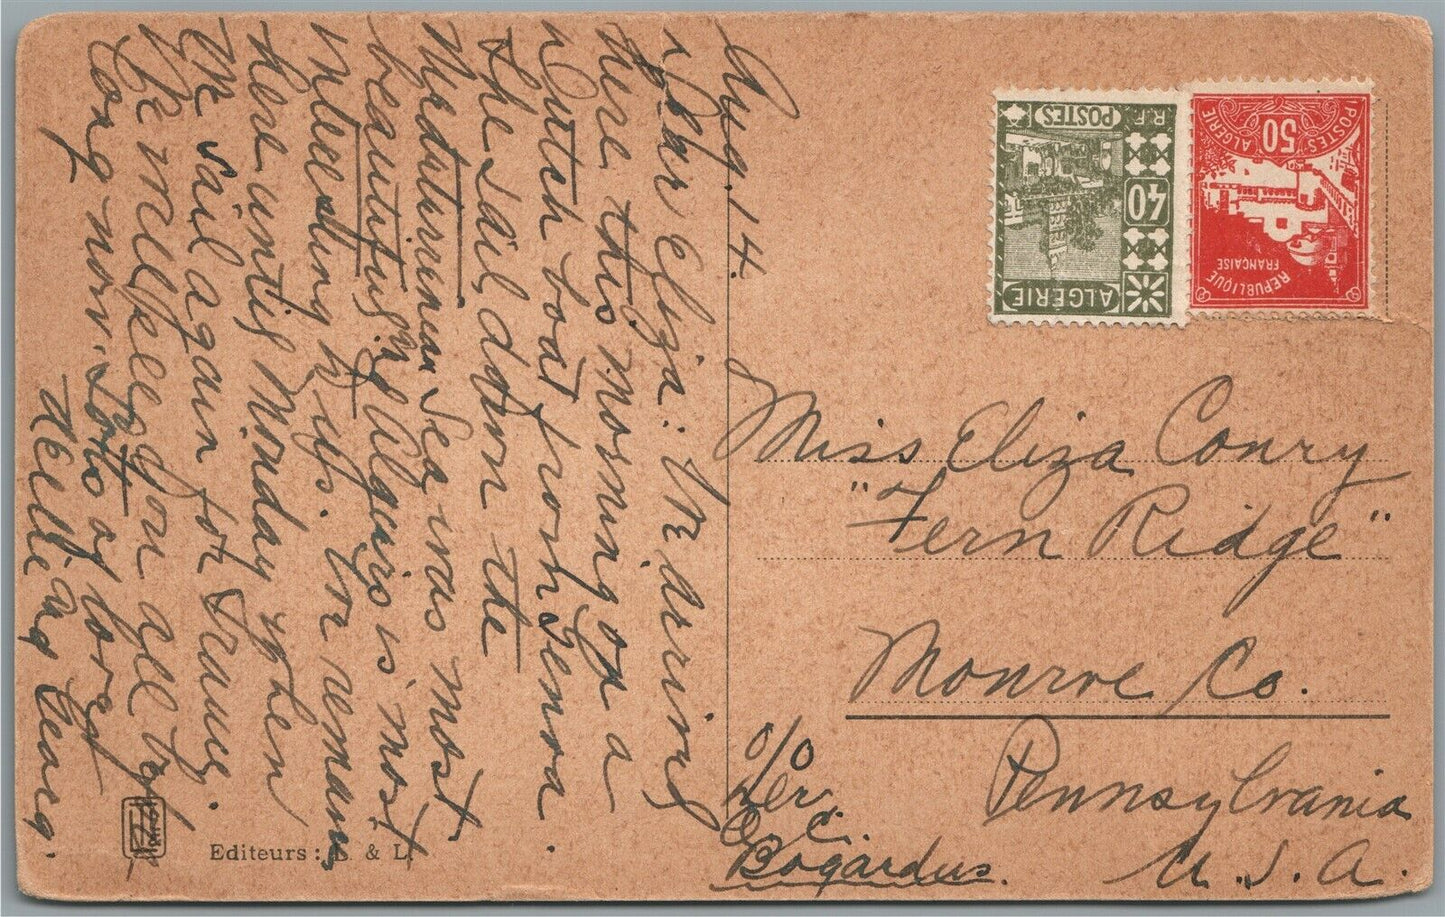 Aug. 14.
Dear Eliza: Arriving
here this morning on a
Dutch boat from Genoa.
The sail down the
Mediterranean Sea was most
beautiful. Algiers is most
interesting. H. is to remain
here until Monday when
we sail again for France.
We will keep you all try
long now. Lots of love
William Leary.
ALGÉRIE
40
POSTES
R.F.
POSTES ALGÉRIE
50
REPUBLIQUE
FRANÇAISE
Miss Eliza Conry
"Fern Ridge"
Monroe Co.
Pennsylvania
U.S.A.
c/o
Rev.
C.
Bogardus.
Editeurs: L. & L.